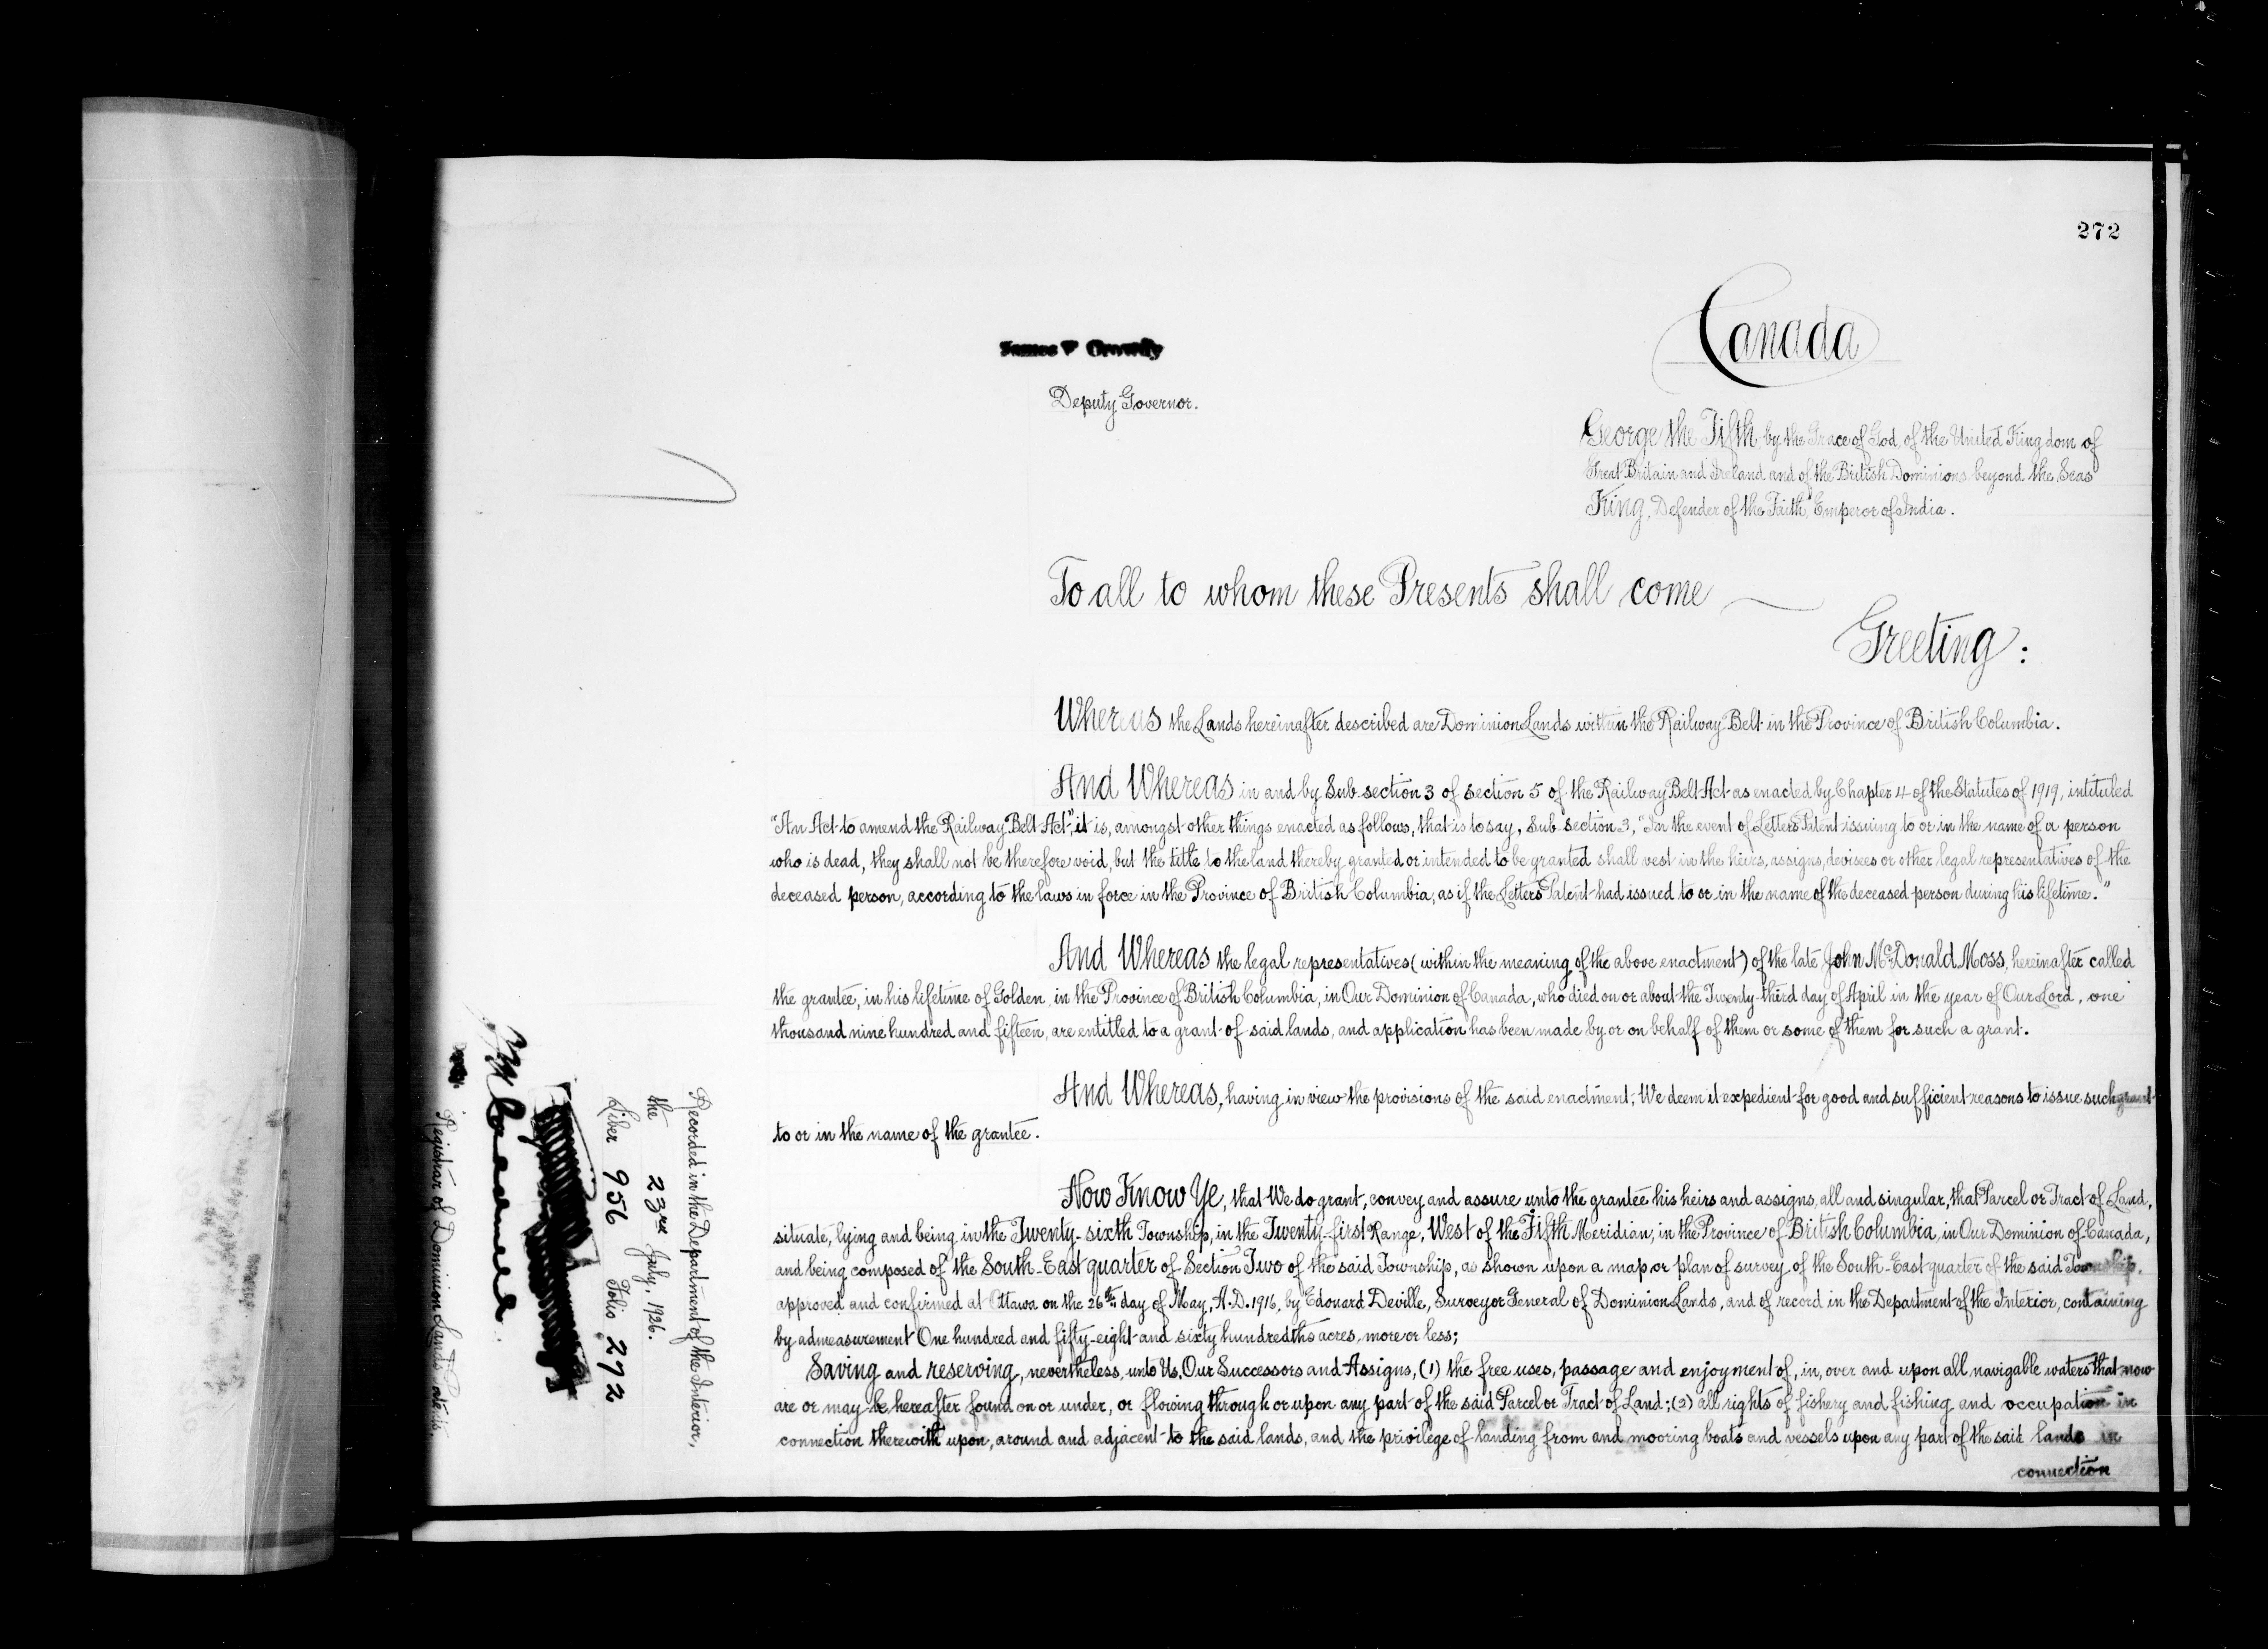 272
Canada
Deputy Governor.
George the Fifth, by the Grace of God, of the United Kingdom of
Great Britain and Ireland and of the British Dominions beyond the Seas
King, Defender of the Faith, Emperor of India.
To all to whom these Presents shall come
Greeting:
Whereas the Lands hereinafter described are Dominion Lands within the Railway Belt in the Province of British Columbia.
And Whereas in and by Sub section 3 of section 5 of the Railway Belt Act as enacted by Chapter 4 of the Statutes of 1919, intituled
"An Act to amend the Railway Belt Act", it is, amongst other things enacted as follows, that is to say, Sub section 3, "In the event of Letters Patent issuing to or in the name of a person
who is dead, they shall not be therefore void, but the title to the land thereby granted or intended to be granted shall vest in the heirs, assigns, devisees or other legal representatives of the
deceased person, according to the laws in force in the Province of British Columbia, as if the Letters Patent had issued to or in the name of the deceased person during his lifetime."
And Whereas the legal representatives (within the meaning of the above enactment) of the late John McDonald Moss, hereinafter called
the grantee, in his lifetime of Golden, in the Province of British Columbia, in Our Dominion of Canada, who died on or about the Twenty-third day of April in the year of Our Lord, one
thousand nine hundred and fifteen, are entitled to a grant of said lands, and application has been made by or on behalf of them or some of them for such a grant.
And Whereas, having in view the provisions of the said enactment, We deem it expedient for good and sufficient reasons to issue such grant
to or in the name of the grantee.
Now Know Ye, that We do grant, convey and assure unto the grantee his heirs and assigns, all and singular, that Parcel or Tract of Land,
situate, lying and being in the Twenty-sixth Township, in the Twenty-first Range, West of the Fifth Meridian, in the Province of British Columbia, in Our Dominion of Canada,
and being composed of the South-East quarter of Section Two of the said Township, as shown upon a map or plan of survey of the South-East quarter of the said Township,
approved and confirmed at Ottawa on the 26th day of May, A.D. 1916, by Edouard Deville, Surveyor General of Dominion Lands, and of record in the Department of the Interior, containing
by admeasurement One hundred and fifty-eight and sixty hundredths acres, more or less;
Saving and reserving, nevertheless, unto Us, Our Successors and Assigns, (1) the free uses, passage and enjoyment of, in, over and upon all navigable waters that now
are or may be hereafter found on or under, or flowing through or upon any part of the said Parcel or Tract of Land; (2) all rights of fishery and fishing and occupation in
connection therewith upon, around and adjacent to the said lands, and the privilege of landing from and mooring boats and vessels upon any part of the said lands in
connection
Recorded in the Department of the Interior,
the 23rd July, 1926.
Liber 956 Folio 272
Registrar of Dominion Lands Patents.